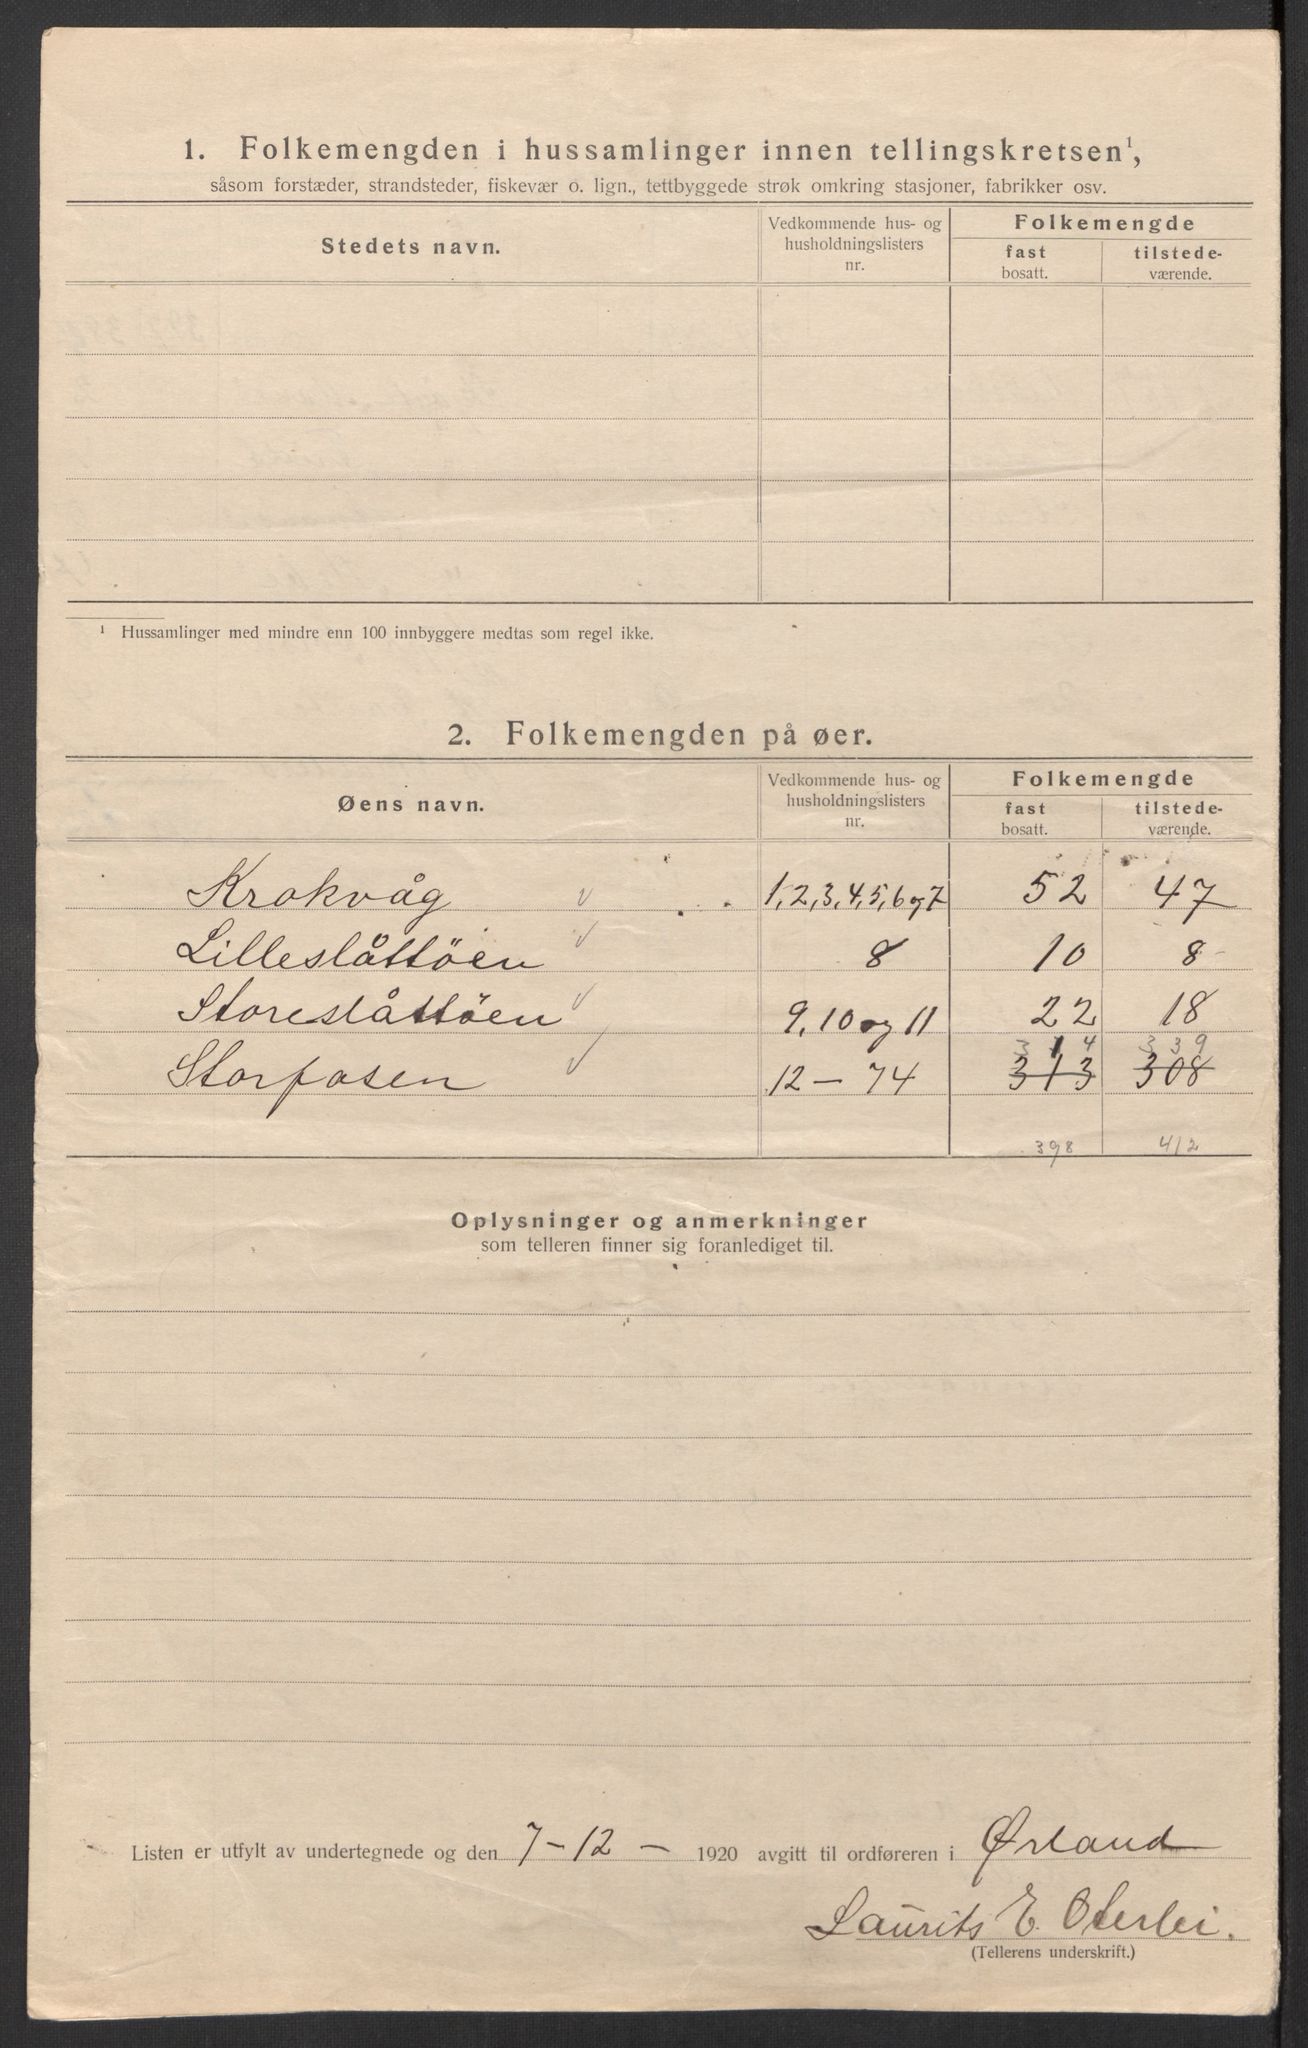 1. Folkemengden i hussamlinger innen tellingskretsen¹,
såsom forstæder, strandsteder, fiskevær o. lign., tettbyggede strøk omkring stasjoner, fabrikker osv.
Stedets navn.
Vedkommende hus- og husholdningslisters nr.
Folkemengde
fast bosatt.
tilstede-værende.
¹ Hussamlinger med mindre enn 100 innbyggere medtas som regel ikke.
2. Folkemengden på øer.
Øens navn.
Vedkommende hus- og husholdningslisters nr.
Folkemengde
fast bosatt.
tilstede-værende.
Krokvåg 1,2,3,4,5,6 og 7 52 47
Lilleslåttöen 8 10 8
Storeslåttöen 9, 10 og 11 22 18
314 339
Storfosen 12 - 74 313 308
398 412
Oplysninger og anmerkninger
som telleren finner sig foranlediget til.
Listen er utfylt av undertegnede og den 7-12- 1920 avgitt til ordføreren i Ørland
Laurits E. Oterlei.
(Tellerens underskrift.)